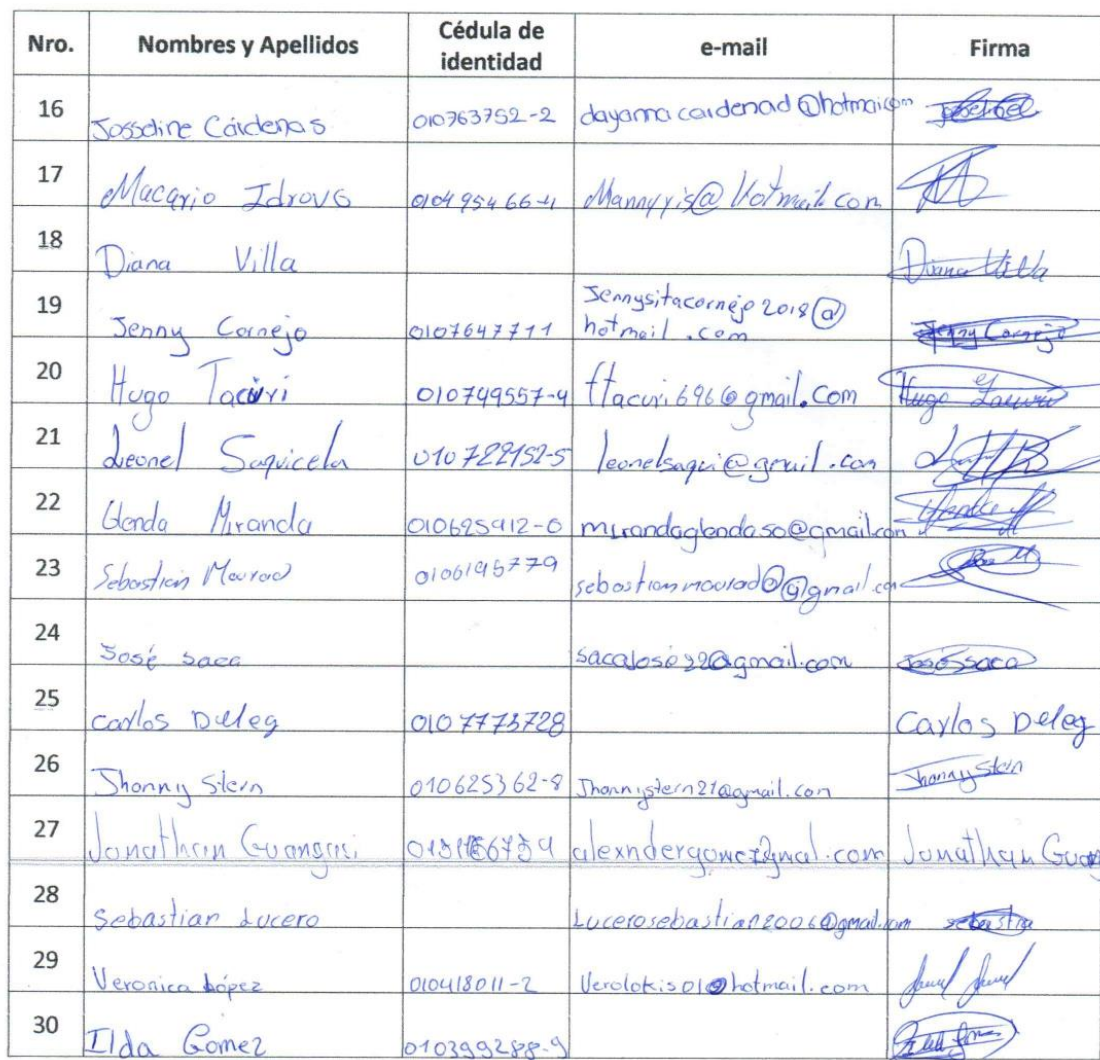 Nro. Nombres y Apellidos Cédula de identidad e-mail Firma
16 Josseline Cárdenas 010763752-2 dayannacardenad@hotmai.com
17 Macario Idrovo 010495466-4 Mannyyis@Hotmail.com
18 Diana Villa Diana Villa
19 Jenny Cornejo 0107647711 Jennysitacornejo2018@ hotmail.com Jenny Cornejo
20 Hugo Tacuri 010749557-4 ftacuri696@gmail.com Hugo Tacuri
21 Leonel Saquicela 010722152-5 leonelsaqui@gmail.com
22 Glenda Miranda 010625912-0 mirandaglendaso@gmail.com
23 Sebastian Mourad 0106195779 sebastianmourad@gmail.com
24 José Saca sacajose22@gmail.com José Saca
25 Carlos Deleg 0107773728 Carlos Deleg
26 Jhonny Stern 010625362-8 Jhonnystern21@gmail.com Jhonny Stern
27 Jonathan alexndergomez@gmal.com Jonathan
28 Sebastian Lucero Lucerosebastian2006@gmail.com sebastian
29 Veronica López 010418011-2 Verolokis01@hotmail.com
30 Ilda Gomez 010399288-9